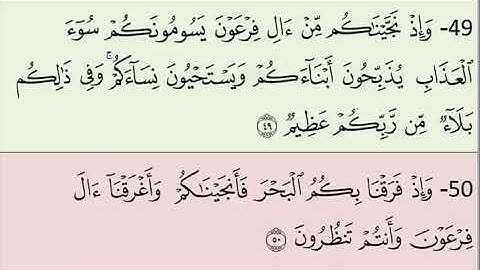 49- وَإِذْ نَجَّيْنَاكُم مِّنْ ءَالِ فِرْعَوْنَ يَسُومُونَكُمْ سُوٓءَ
ٱلْعَذَابِ يُذَبِّحُونَ أَبْنَآءَكُمْ وَيَسْتَحْيُونَ نِسَآءَكُمْ ۚ وَفِى ذَٰلِكُم
بَلَآءٌ مِّن رَّبِّكُمْ عَظِيمٌ ٤٩
50- وَإِذْ فَرَقْنَا بِكُمُ ٱلْبَحْرَ فَأَنجَيْنَاكُمْ وَأَغْرَقْنَآ ءَالَ
فِرْعَوْنَ وَأَنتُمْ تَنظُرُونَ ٥٠